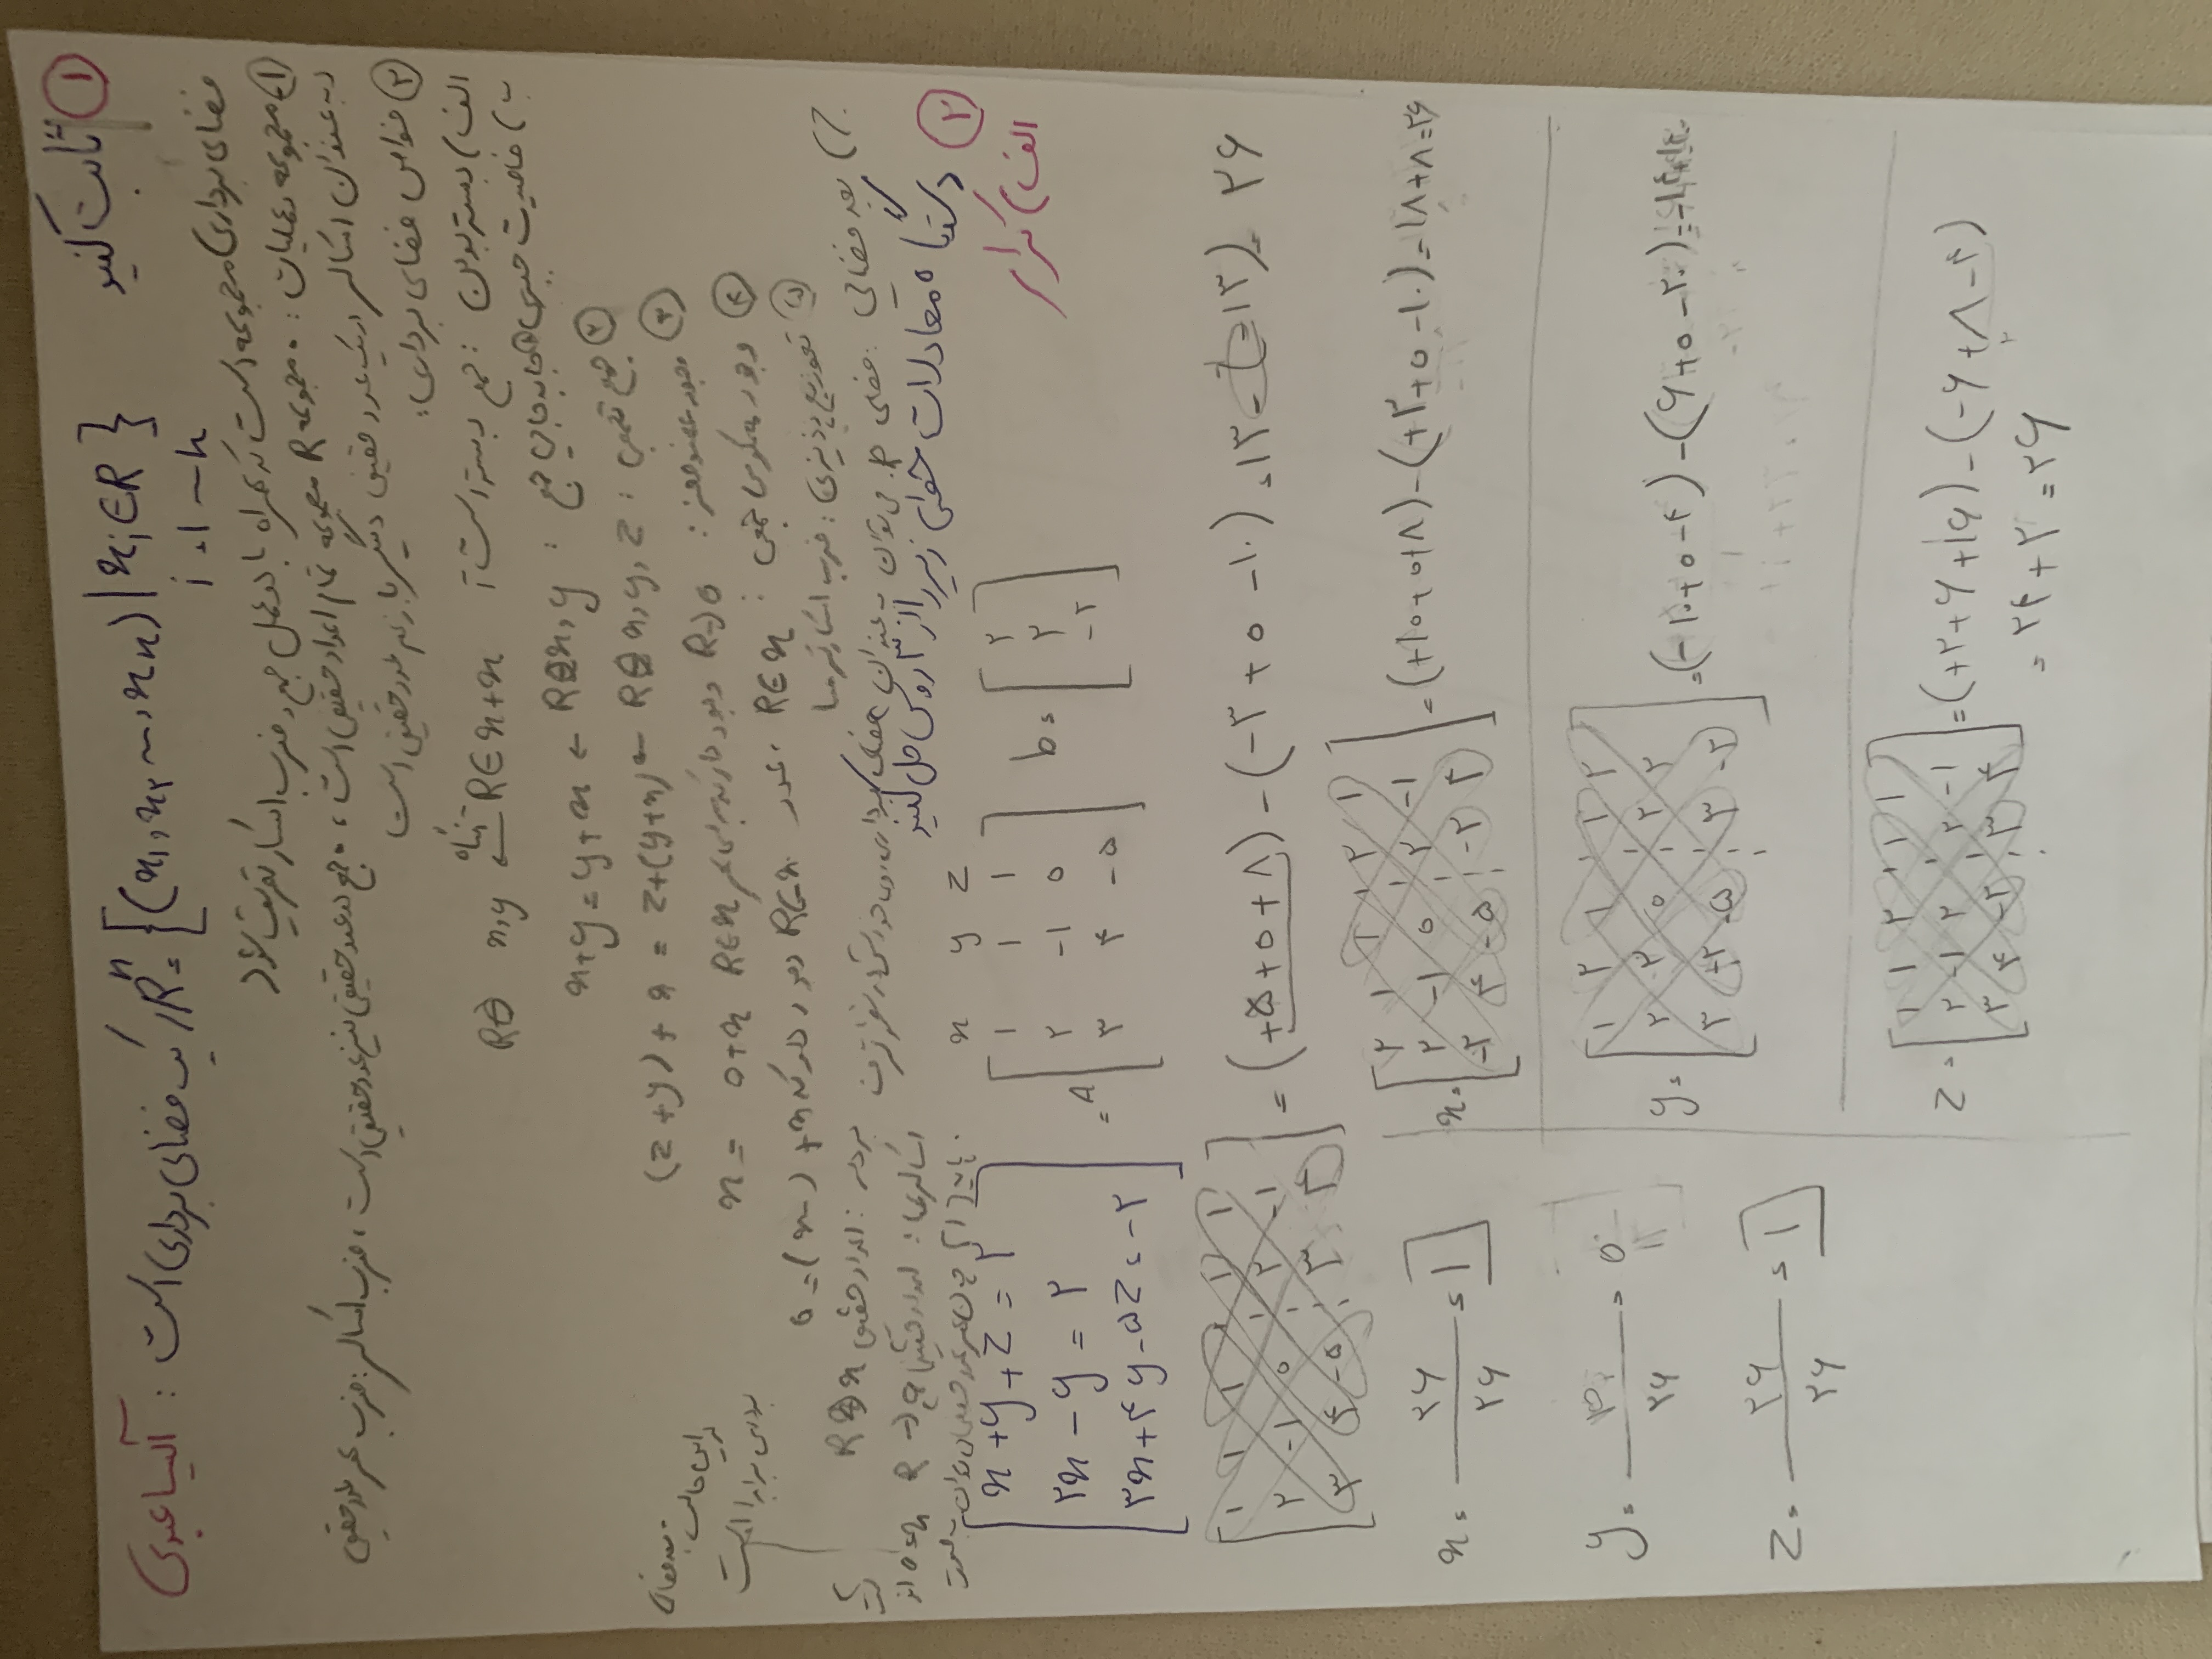 ① ثابت کنید
R^n = {(x₁, x₂ ~, xₙ) | xᵢ ∈ R} یک فضای برداری است : آلیسا عبدی
i = ۱ ~ n
فضای برداری مجموعه است که همراه با دو عمل جمع و ضرب اسکار تعریف شود
①- مجموعه و عملیات : • مجموعه R مجموعه تمام اعداد حقیقی است ، • جمع دو عدد حقیقی نیز عدد حقیقی است ، ضرب اسکالر : ضرب هر عدد حقیقی
به عنوان اسکالر در یک عدد حقیقی دیگر باز هم عدد حقیقی است
② خواص فضای برداری :
الف) بسته بودن : جمع بسته است R∈x+x آنگاه x,y
ب) خاصیت جبری ① جابه جایی جمع : x,y ← x+y = y+x
② جمع تجمعی : x, y, z ← z+(y+x) = (z+y)+x
③ وجود عضو صفر : وجود دارد که برای هر R∈x 0+x = x
④ وجود معکوس جمعی : R∈x ، عدد R∈-x وجود دارد که x+(-x) = 0
⑤ توزیع پذیری : ضرب اسکالر
ج) بعد فضایی : فضای R می توان به عنوان فضای برداری روی خودش در نظر گرفت بردار : اعداد حقیقی
در این حالت بعد فضای
برداری برابر ۱ است
② دستگاه معادلات خطی زیر را از ۳ روش حل کنید
الف) کرامر
x+y+z = ۲
۲x - y = ۲
۳x+۴y-۵z = -۲
x y z
= A [ ۱ ۱ ۱
۲ -۱ ۰
۳ ۴ -۵ ] b = [ ۲
۲
-۲ ]
[ ۱ ۱ ۱ ¦ ۱ ۱
۲ -۱ ۰ ¦ ۲ -۱
۳ ۴ -۵ ¦ ۳ ۴ ] = (+۵+۰+۸) - (-۳+۰-۱۰) = ۱۳-(-۱۳) = ۲۶
x = [ ۲ ۱ ۱ ¦ ۲ ۱
۲ -۱ ۰ ¦ ۲ -۱
-۲ ۴ -۵ ¦ -۲ ۴ ] = (+۱۰+۰+۸) - (+۲+۰-۱۰) = ۱۸+۸ = ۲۶
x = ۲۶/۲۶ = ۱
y = [ ۱ ۲ ۱ ¦ ۱ ۲
۲ ۲ ۰ ¦ ۲ ۲
۳ -۲ -۵ ¦ ۳ -۲ ] = (-۱۰+۰-۴) - (۶+۰-۲۰) = -۱۴+۱۴
y = ۰/۲۶ = ۰
z = [ ۱ ۱ ۲ ¦ ۱ ۱
۲ -۱ ۲ ¦ ۲ -۱
۳ ۴ -۲ ¦ ۳ ۴ ] = (+۲+۶+۱۶) - (-۶+۸-۴)
= ۲۴+۲ = ۲۶
z = ۲۶/۲۶ = ۱